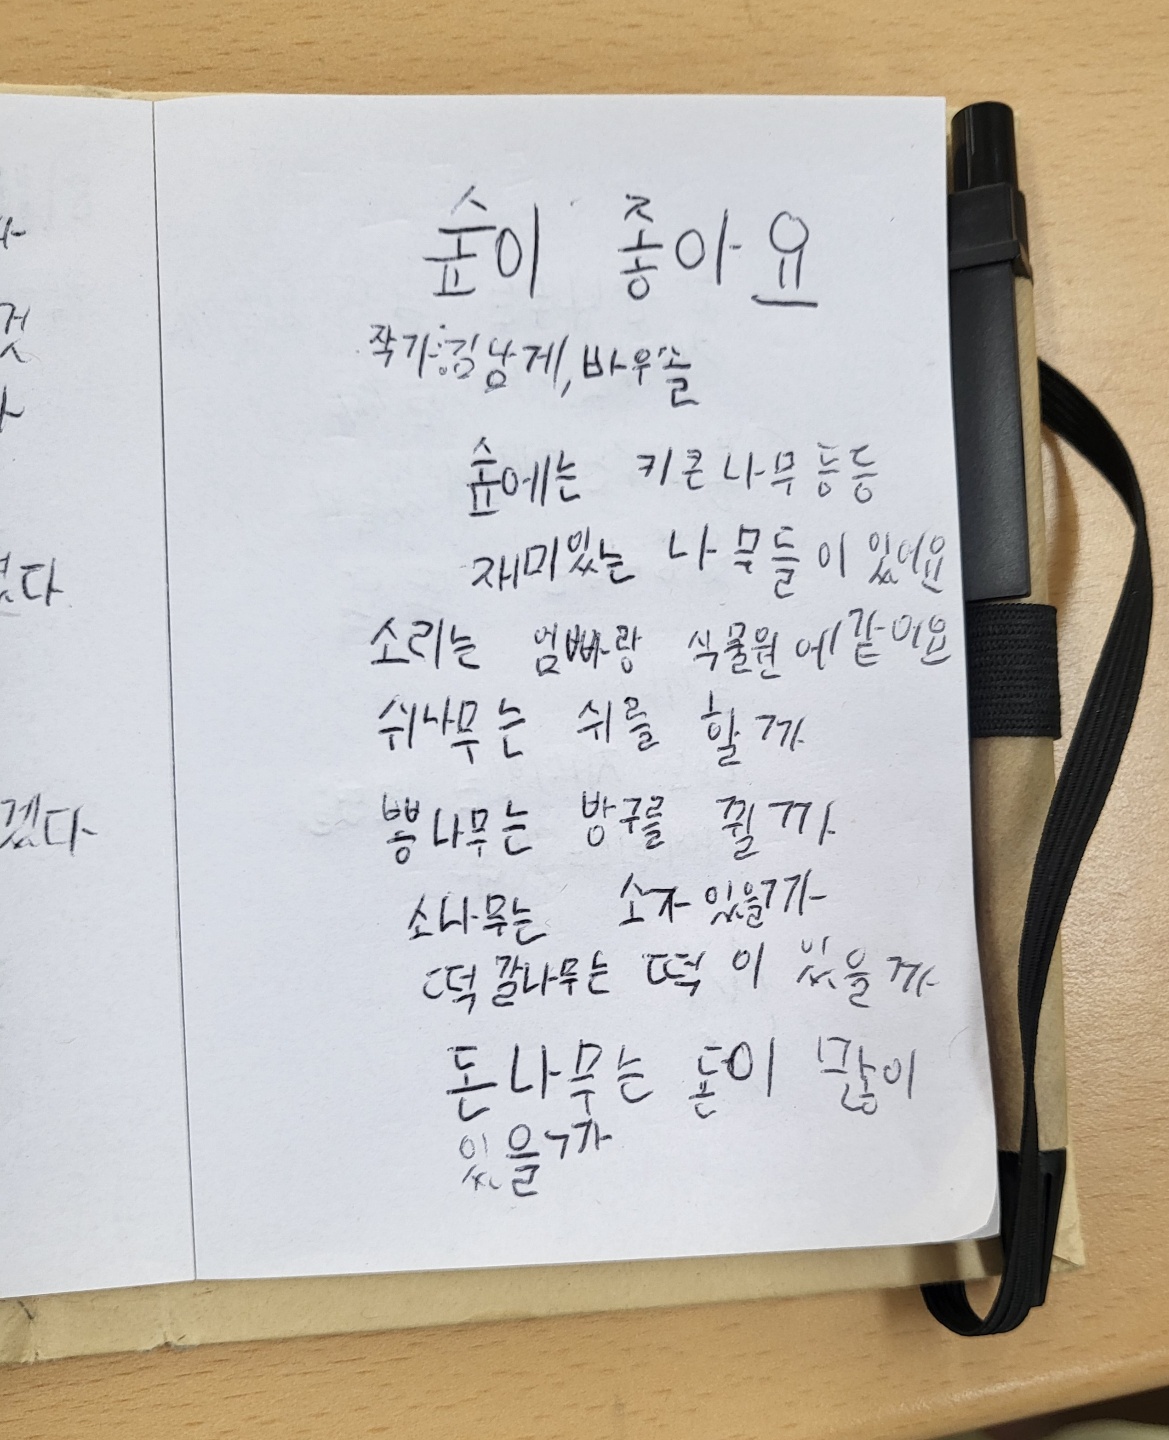 숲이 좋아요
작가:김남게,바우솔
숲에는 키큰나무 등등
재미있는 나무들이 있어요
소리는 엄빠랑 식물원에 같어요
쉬나무는 쉬를 할까
뽕나무는 방구를 뀔까
소나무는 소가 있을까
떡갈나무는 떡이 있을까
돈나무는 돈이 많이
있을까
것
다
겠다